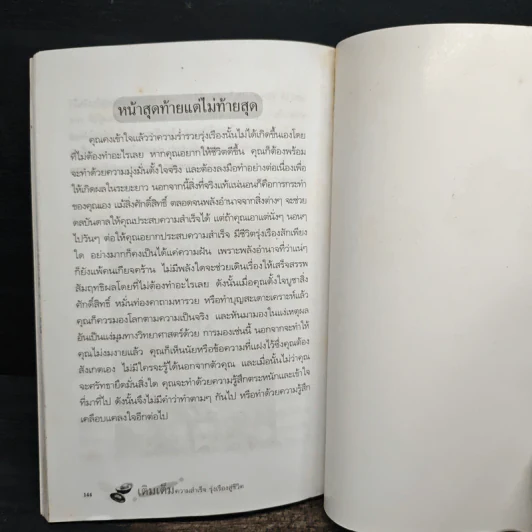 หน้าสุดท้ายแต่ไม่ท้ายสุด
คุณคงเข้าใจแล้วว่าความร่ำรวยรุ่งเรืองนั้นไม่ได้เกิดขึ้นเองโดย
ที่ไม่ต้องทำอะไรเลย หากคุณอยากให้ชีวิตดีขึ้น คุณก็ต้องพร้อม
จะทำด้วยความมุ่งมั่นตั้งใจจริง และต้องลงมือทำอย่างต่อเนื่องเพื่อ
ให้เกิดผลในระยะยาว นอกจากนี้สิ่งที่จริงแท้แน่นอนก็คือการกระทำ
ของคุณเอง แม้สิ่งศักดิ์สิทธิ์ ตลอดจนพลังอำนาจจากสิ่งต่างๆ จะช่วย
ดลบันดาลให้คุณประสบความสำเร็จได้ แต่ถ้าคุณเอาแต่นั่งๆ นอนๆ
ไปวันๆ ต่อให้คุณอยากประสบความสำเร็จ มีชีวิตรุ่งเรืองสักเพียง
ใด อย่างมากก็คงเป็นได้แค่ความฝัน เพราะพลังอำนาจที่ว่าแน่ๆ
ก็ยังแพ้คนเกียจคร้าน ไม่มีพลังใดจะช่วยเดินเรื่องให้เสร็จสรรพ
สัมฤทธิผลโดยที่ไม่ต้องทำอะไรเลย ดังนั้นเมื่อคุณตั้งใจบูชาสิ่ง
ศักดิ์สิทธิ์ หมั่นท่องคาถามหารวย หรือทำบุญสะเดาะเคราะห์แล้ว
คุณก็ควรมองโลกตามความเป็นจริง และหันมามองในแง่เหตุผล
อันเป็นแง่มุมทางวิทยาศาสตร์ด้วย การมองเช่นนี้ นอกจากจะทำให้
คุณไม่งมงายแล้ว คุณก็เห็นนัยหรือข้อความที่แฝงไว้ซึ่งคุณต้อง
สังเกตเอง ไม่มีใครจะรู้ได้นอกจากตัวคุณ และเมื่อนั้นไม่ว่าคุณ
จะศรัทธายึดมั่นสิ่งใด คุณจะทำด้วยความรู้สึกตระหนักและเข้าใจ
ที่มาที่ไป ดังนั้นจึงไม่มีคำว่าทำตามๆ กันไป หรือทำด้วยความรู้สึก
เคลือบแคลงใจอีกต่อไป
144 เติมเต็มความสำเร็จ รุ่งเรืองสู่ชีวิต